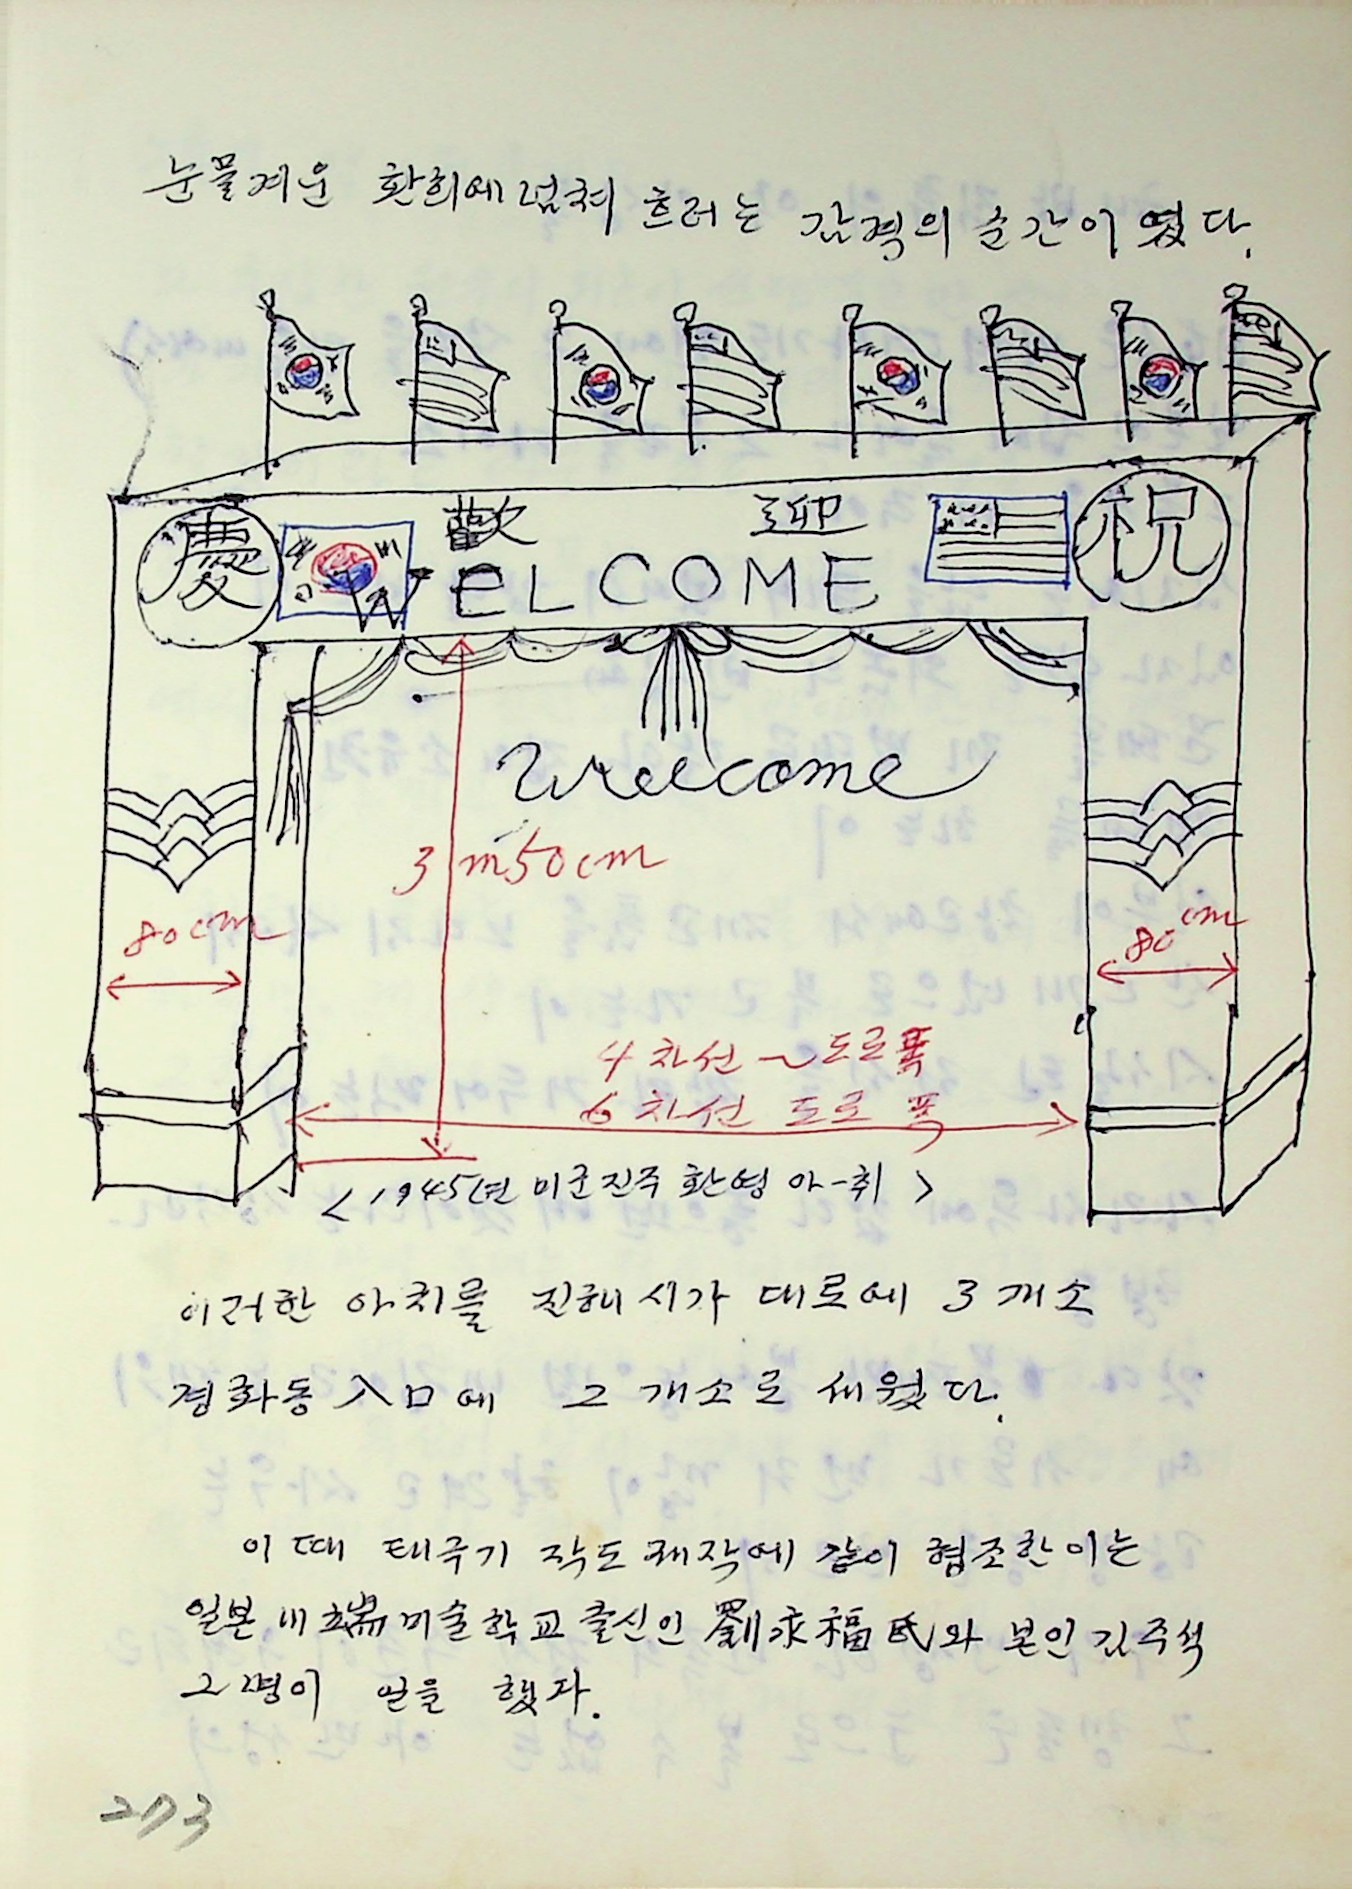 눈물겨운 환희에 넘쳐 흐르는 감격의 순간이 였다.
慶 歡 迎 祝
WELCOME
Welcome
3m50cm
80cm
80cm
4차선~도로폭
6차선 도로폭
<1945년 미군진주 환영 아-취>
이러한 아치를 진해시가 대로에 3개소
경화동 入口에 2개소로 세웠다.
이때 태극기 작도 제작에 같이 협조한이는
일본 川端미술학교 출신인 劉永福氏와 본인 김주석
2명이 일을 했다.
273